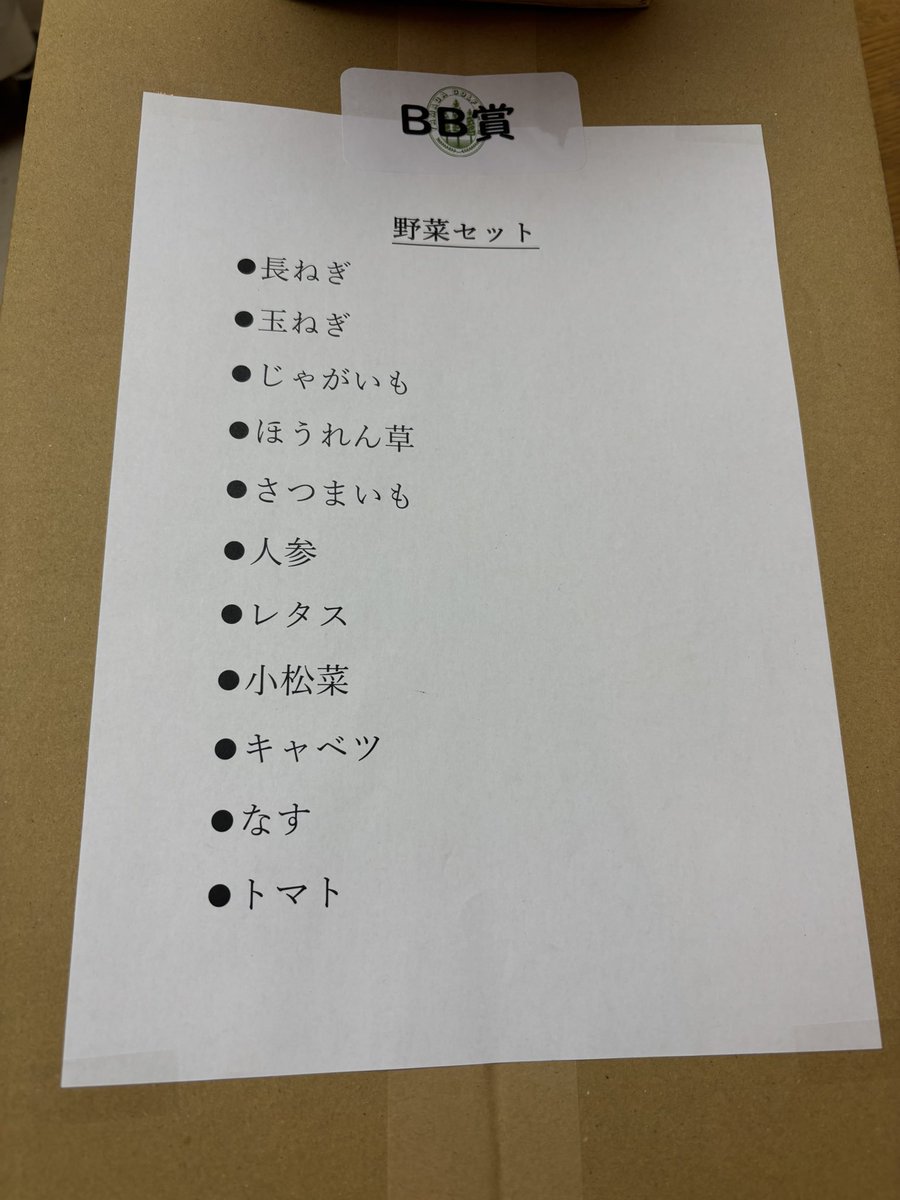 BB賞
野菜セット
●長ねぎ
●玉ねぎ
●じゃがいも
●ほうれん草
●さつまいも
●人参
●レタス
●小松菜
●キャベツ
●なす
●トマト